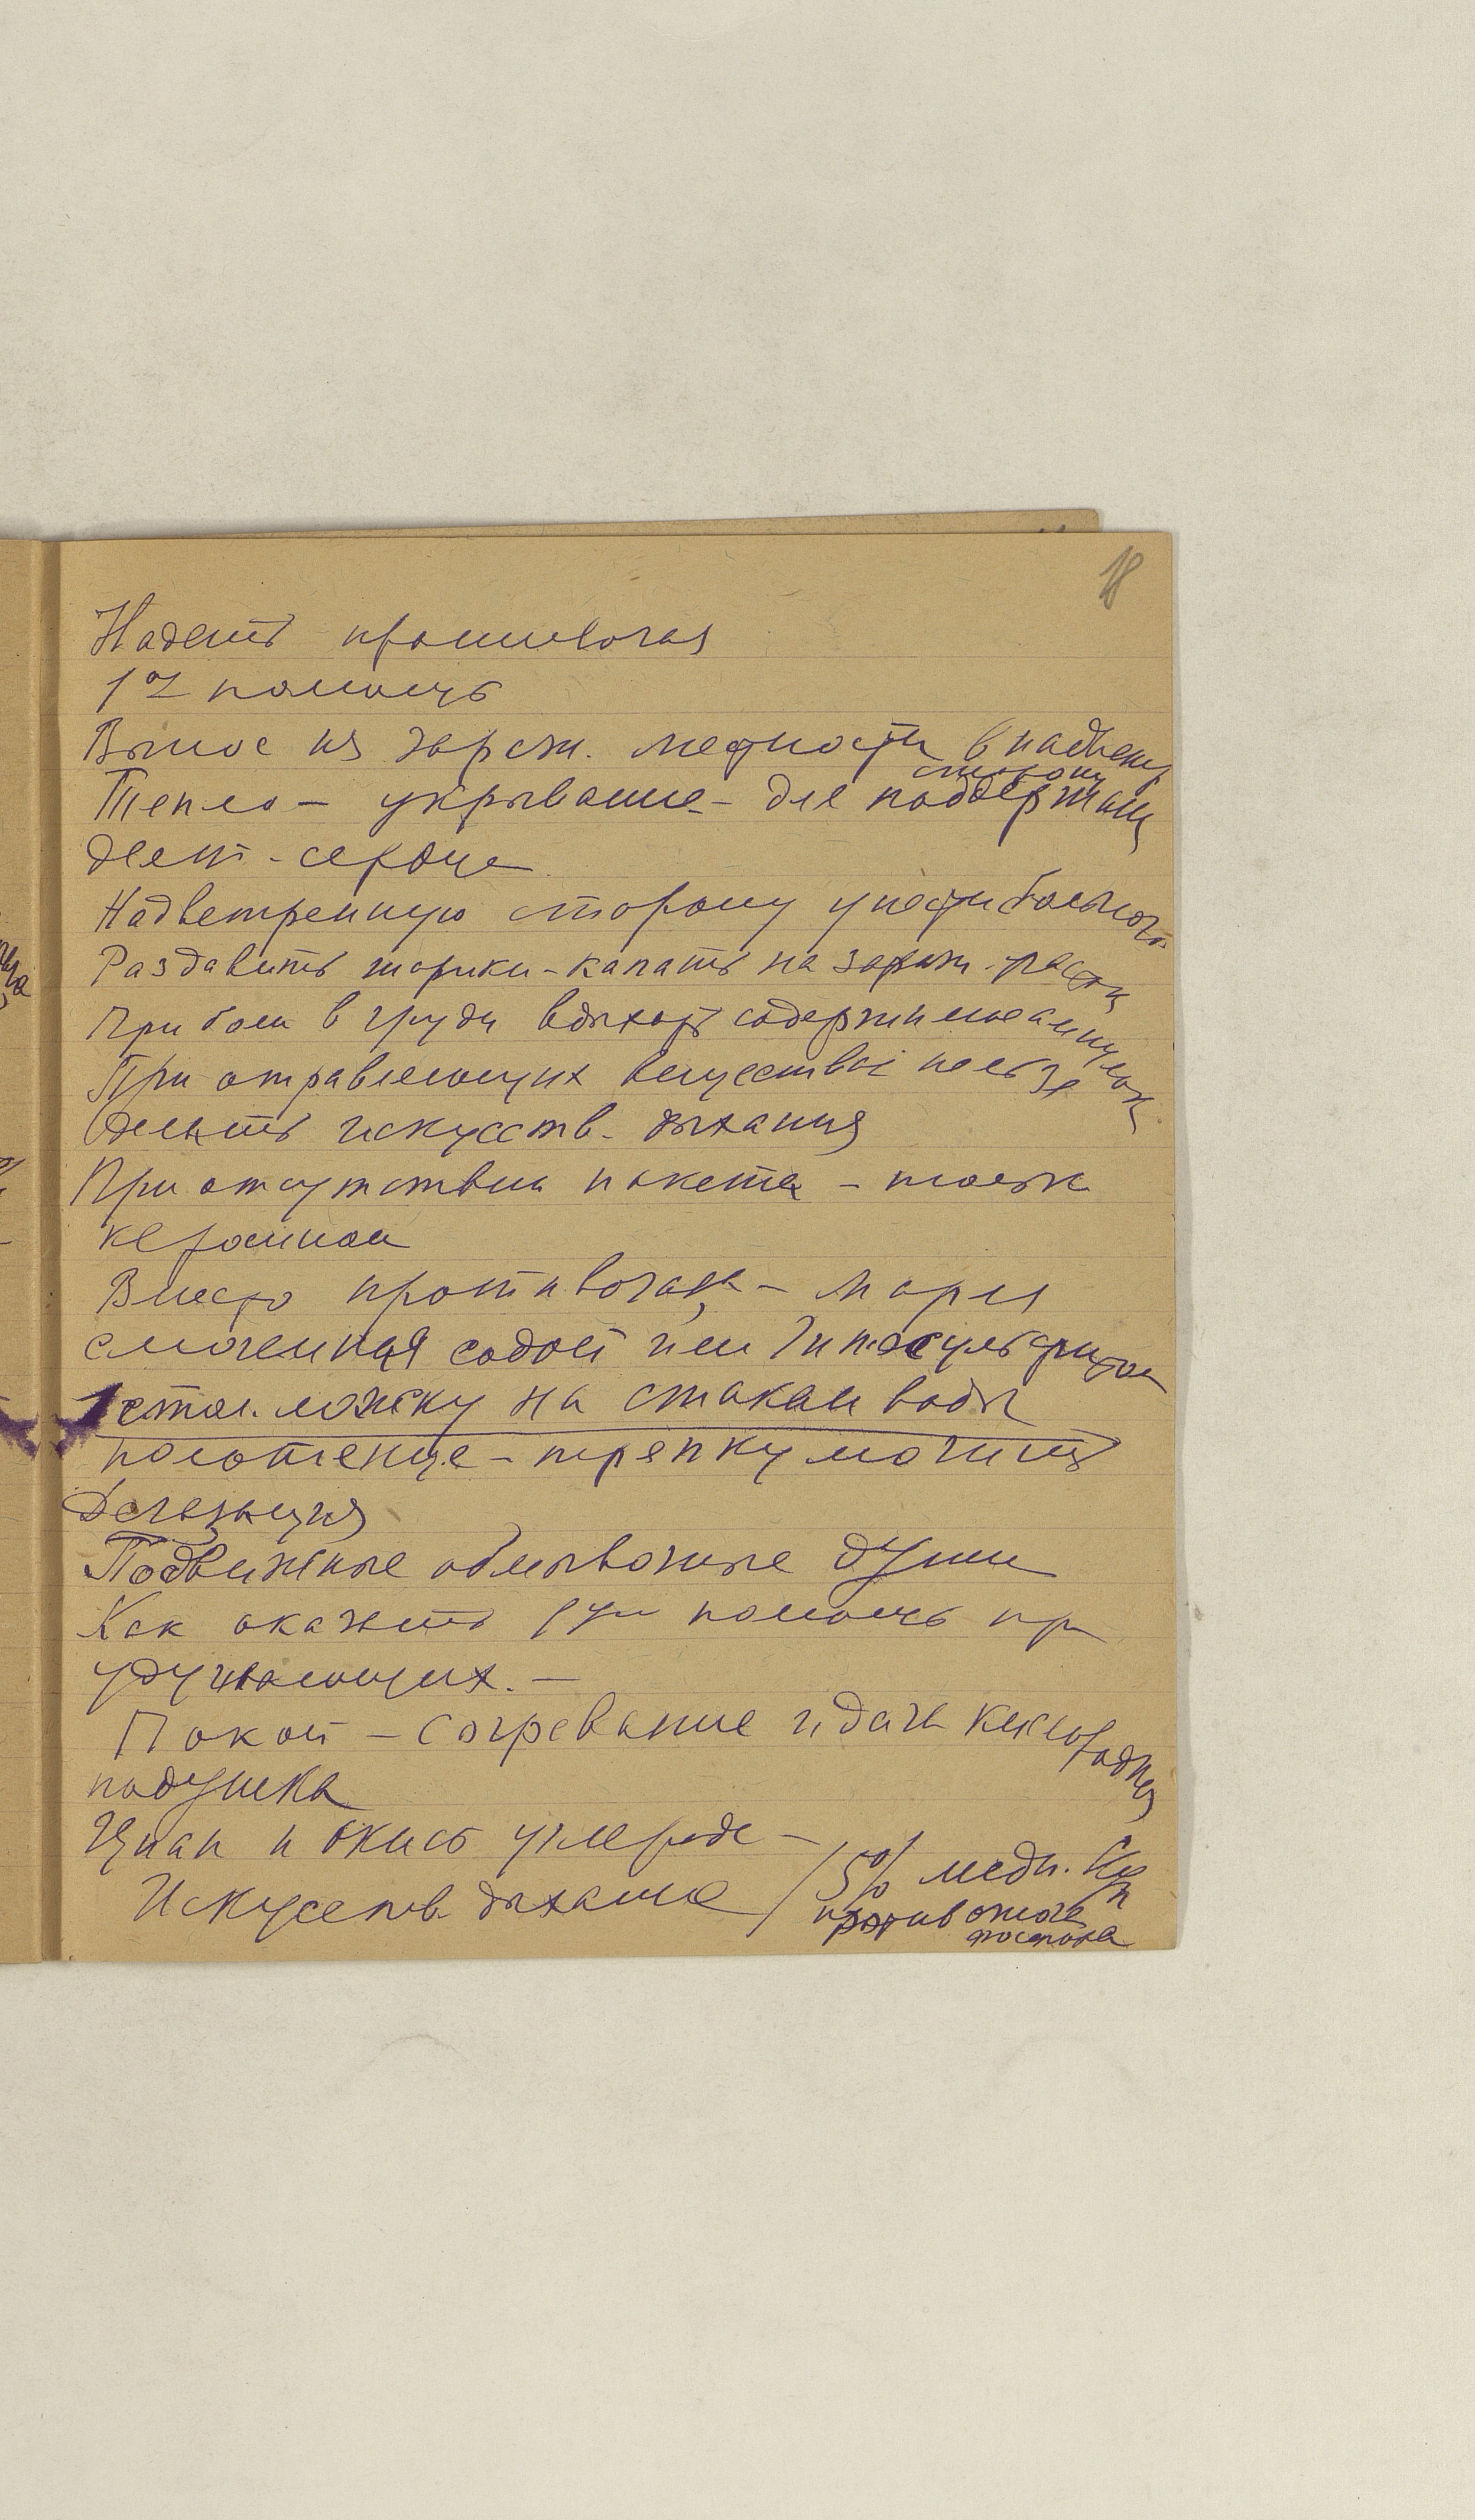 18
Надеть противогаз
1я помощь
Вынос из зараж. местности в надветр
сторону
Тепло – укрывание – для поддержан
деят. сердца
Надветренную сторону унести больного
Раздавить шарики – капать на зараж.
При боли в груди вдыхать содержимое ампулок
При отравляющих веществах нельзя
делать искусств. дыхания
При отсутствии пакета –
керосином
Вместо противогаза – марля
смоченная содой или Гипосульфитом
1 стол. ложку на стакан воды
полотенце – тряпку мочить
Дегазация
Подвижные обмывочные души
Как оказать 1ую помощь при
удушающих. –
Покой – согревание и дача кислородная
подушка
Циан и окись углерода –
Искусств. дыхание / 5% медн. Куп
против ожога
фосфора